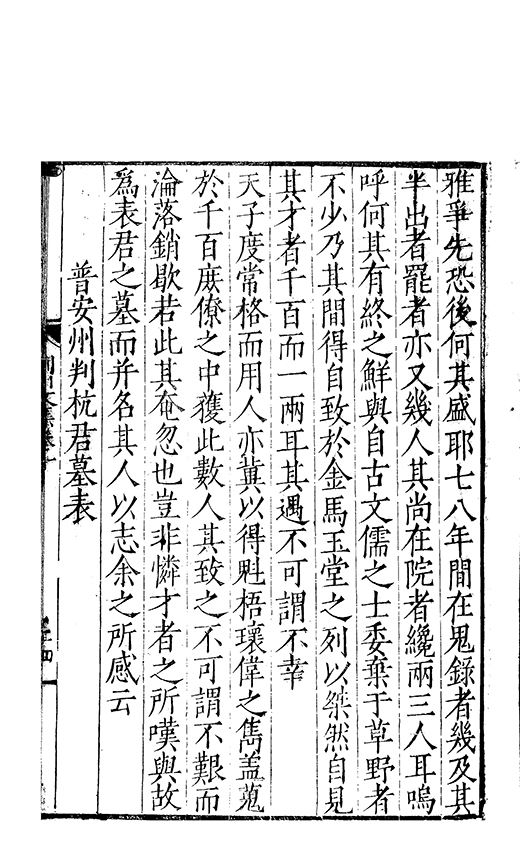 雅爭先恐後何其盛耶七八年間在鬼錄者幾及其
半出者罷者亦又幾人其尚在院者纔兩三人耳嗚
呼何其有終之鮮與自古文儒之士委棄于草野者
不少乃其間得自致於金馬玉堂之列以桀然自見
其才者千百而一兩耳其遇不可謂不幸
天子度常格而用人亦冀以得魁梧瓌偉之雋盖蒐
於千百庶僚之中獲此數人其致之不可謂不艱而
淪落銷歇若此其奄忽也豈非憐才者之所嘆與故
為表君之墓而并名其人以志余之所感云
普安州判杭君墓表